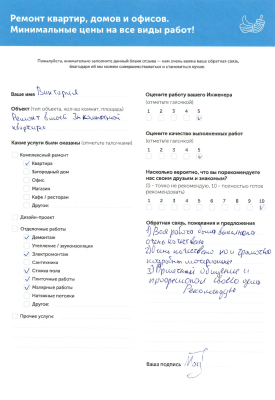 Ремонт квартир, домов и офисов.
Минимальные цены на все виды работ!
Пожалуйста, внимательно заполните данный бланк отзыва — нам очень важна ваша обратная связь,
благодаря ей мы можем совершенствоваться и становиться лучше.
Ваше имя Виктория
Объект (тип объекта, кол-во комнат, площадь)
Ремонт ванной 3х комнатной
квартиры
Какие услуги были оказаны (отметьте галочкой)
Комплексный ремонт
Квартира
Загородный дом
Офис
Магазин
Кафе / ресторан
Другое:
Дизайн-проект
Отдельные работы
Демонтаж
Утепление / звукоизоляция
Электромонтаж
Сантехника
Стяжка пола
Плиточные работы
Малярные работы
Натяжные потолки
Другое:
Прочие услуги:
Оцените работу вашего Инженера
(отметьте галочкой)
1 2 3 4 5
Оцените качество выполненных работ
(отметьте галочкой)
1 2 3 4 5
Насколько вероятно, что вы порекомендуете
нас своим друзьям и знакомым?
(1 - точно не рекомендую, 10 - полностью готов
рекомендовать)
1 2 3 4 5 6 7 8 9 10
Обратная связь, пожелания и предложения
1) Вся работа была выполнена
очень качественно
2) Очень качественно и грамотно
подобраны материалы
3) Приятный общение и
профессионал своего дела
Рекомендую
Ваша подпись